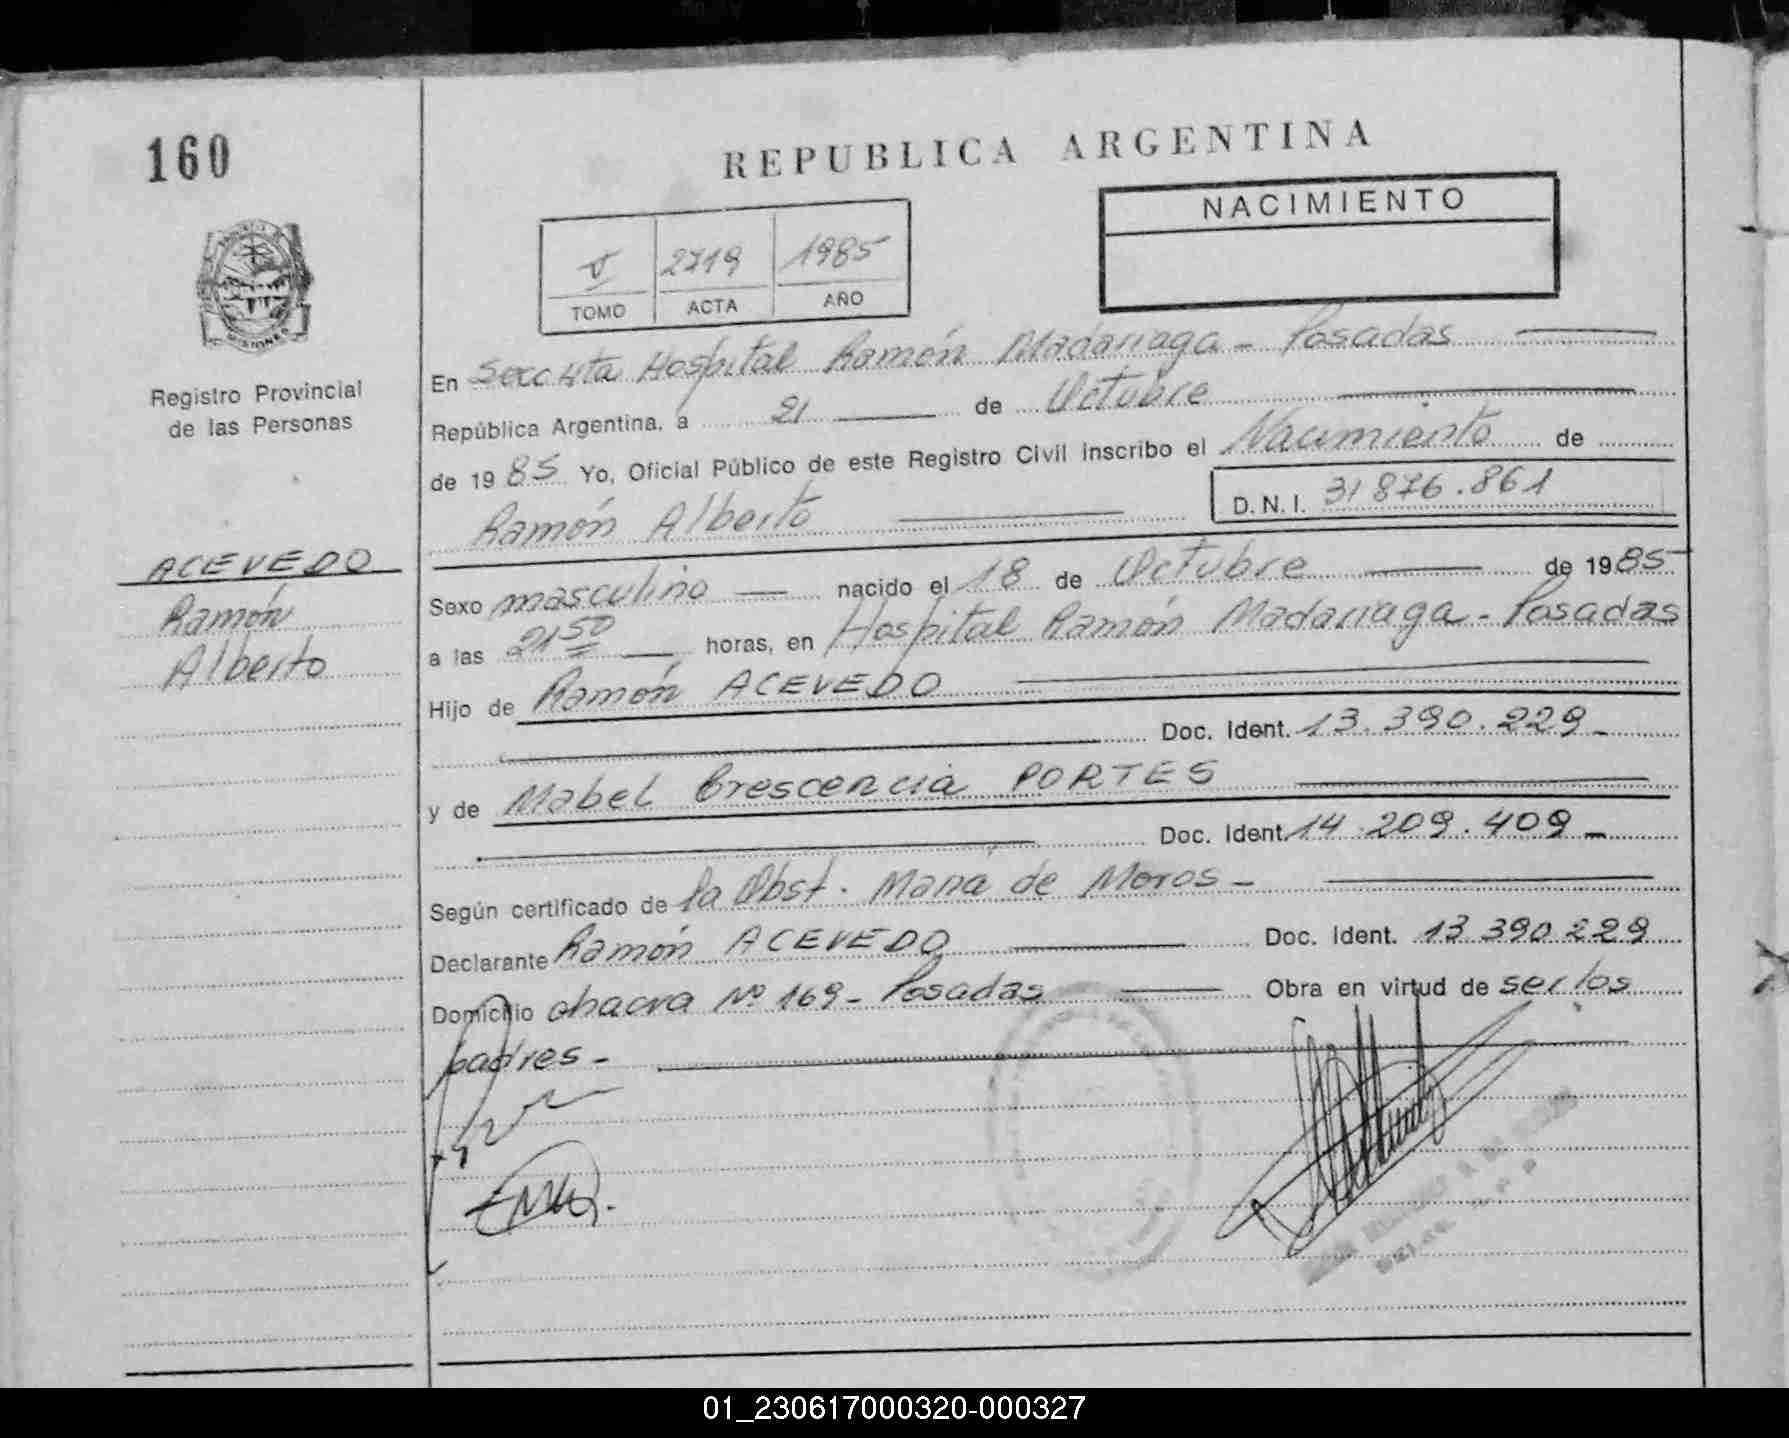 160
REPUBLICA ARGENTINA
NACIMIENTO
V 2719 1985
TOMO ACTA AÑO
MISIONES
Registro Provincial
de las Personas
En Secc 4ta Hospital Ramón Madariaga - Posadas
República Argentina, a 21 de Octubre
de 1985 Yo, Oficial Público de este Registro Civil inscribo el Nacimiento de
Ramón Alberto D.N.I. 31876.861
ACEVEDO
Ramón
Alberto
Sexo masculino nacido el 18 de Octubre de 1985
a las 21 50 horas, en Hospital Ramón Madariaga - Posadas
Hijo de Ramón ACEVEDO
Doc. Ident. 13.390.229
y de Mabel Crescencia PORTES
Doc. Ident. 14.209.409
Según certificado de la Obst. María de Moros -
Declarante Ramón ACEVEDO Doc. Ident. 13.390.229
Domicilio chacra Nº 169 - Posadas Obra en virtud de ser los
padres -
01_230617000320-000327